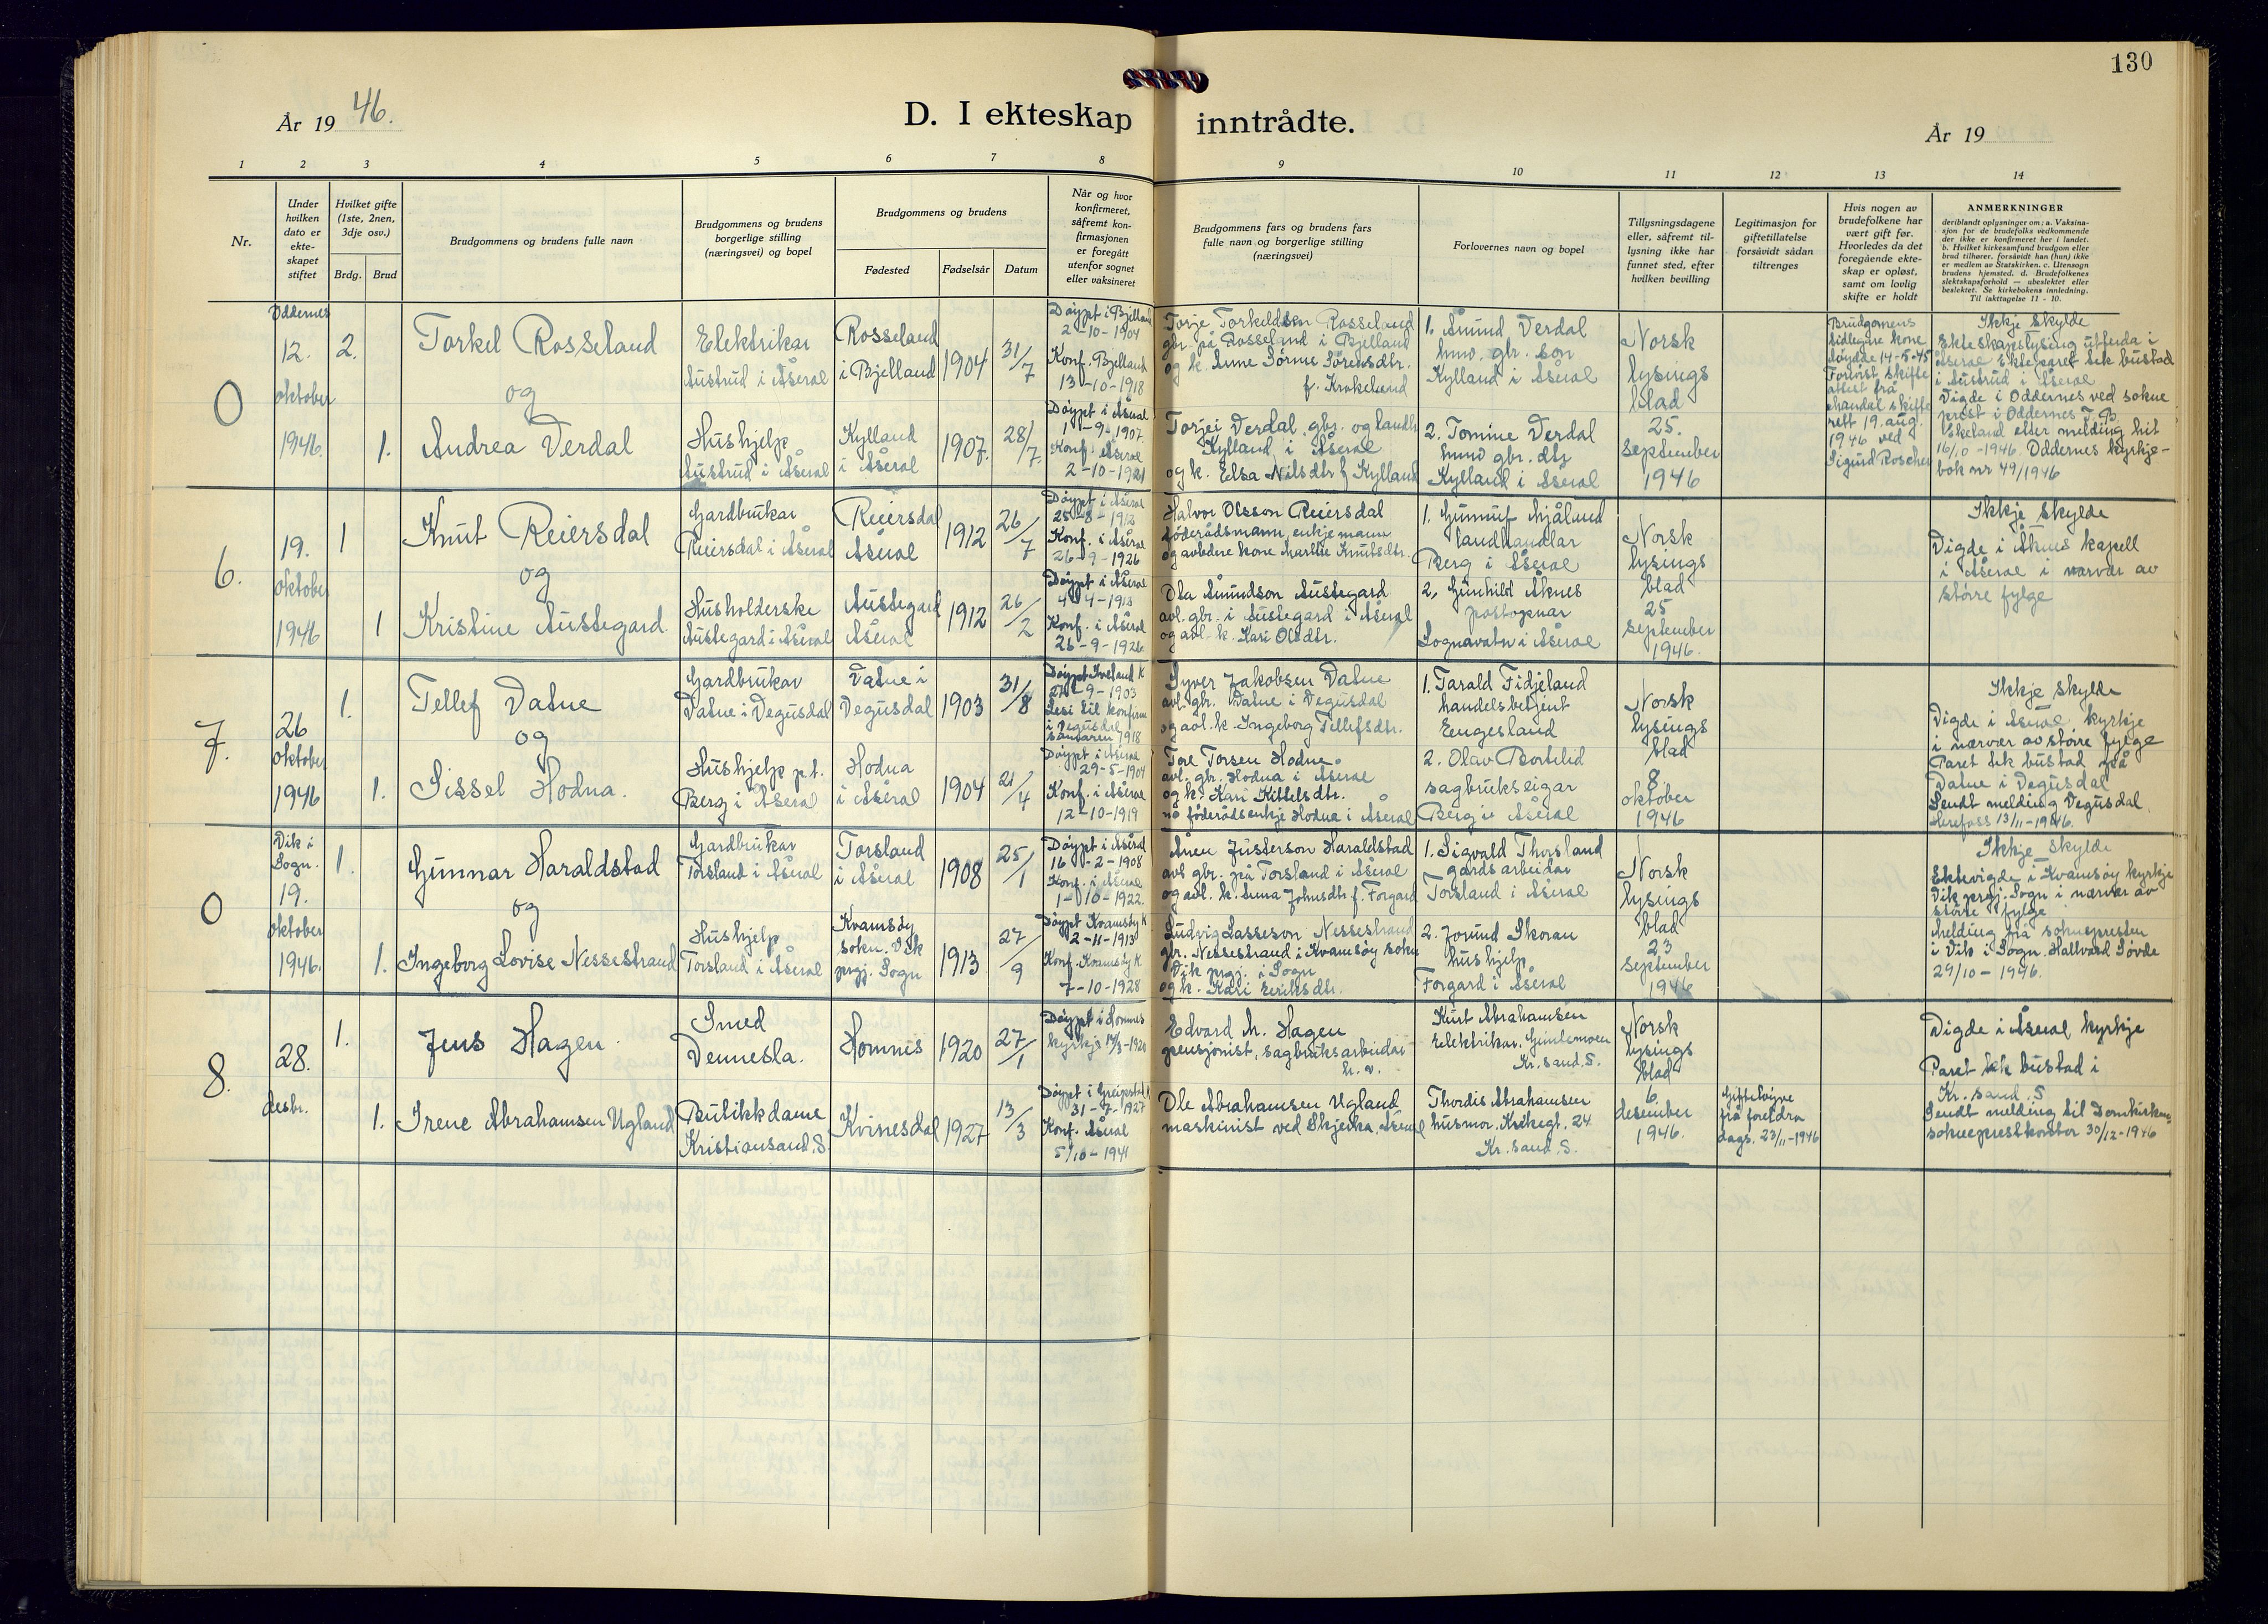 130
År 19 46.
D. I ekteskap inntrådte.
År 19
1 2 3 4 5 6 7 8 9 10 11 12 13 14
Nr.
Under
hvilken
dato er
ekte-
skapet
stiftet
Hvilket gifte
(1ste, 2nen,
3dje osv.)
Brdg. Brud
Brudgommens og brudens fulle navn
Brudgommens og brudens
borgerlige stilling
(næringsvei) og bopel
Brudgommens og brudens
Fødested Fødselsår Datum
Når og hvor
konfirmeret,
såfremt kon-
firmasjonen
er foregått
utenfor sognet
eller vaksineret
Brudgommens fars og brudens fars
fulle navn og borgerlige stilling
(næringsvei)
Forlovernes navn og bopel
Tillysningsdagene
eller, såfremt til-
lysning ikke har
funnet sted, efter
hvilken bevilling
Legitimasjon for
giftetillatelse
forsåvidt sådan
tiltrenges
Hvis nogen av
brudefolkene har
vært gift før.
Hvorledes da det
foregående ekte-
skap er opløst,
samt om lovlig
skifte er holdt
ANMERKNINGER
deriblandt oplysninger om: a. Vaksina-
sjon for de brudefolks vedkommende
der ikke er konfirmeret her i landet.
b. Hvilket kirkesamfund brudgom eller
brud tilhører, forsåvidt han (hun) ikke
er medlem av Statskirken. c. Utensogn
brudens hjemsted. d. Brudefolkenes
slektskapsforhold — ubeslektet eller
beslektet. Se kirkebokens innledning.
Til iakttagelse 11 - 10.
0
Oddernes
12.
oktober
1946.
2.
1.
Torkel Rosseland
og
Andrea Verdal
Elektrikar
Austrud i Åseral
Hushjelp
Austrud i Åseral
Rosseland
i Bjelland
Kylland
i Åseral
1904 31/7
1907. 28/7
Døypt i Bjelland
2-10-1904
Konf. Bjelland
13-10-1918
Døypt i Åseral
1-9-1907.
Konf. Åseral
2-10-1921
Torje Torkeldsen Rosseland
gbr. på Rosseland i Bjelland
og k. Anne Sørine Sørensdtr.
f. Krokelund
Torjei Verdal gbr. og landh
Kylland i Åseral
og k. Elsa Nilsdtr f Kylland
1. Åmund Verdal
huw. gbr. son
Kylland i Åseral
2. Tomine Verdal
huw gbr. dtr
Kylland i Åseral
Norsk
lysings
blad
25.
september
1946
Brudgomens
tidlegare kone
døydde 14-5-45
Forevist skifte
attest frå
Mandal skifte
rett 19. aug.
1946 ved
Sigurd Roscher
Ikkje skylde
Ekteskapslysing utferda i
Åseral Ekteparet tek bustad
i Austrud i Åseral
Vigde i Oddernes ved sokne
prest i Oddernes T. B.
Ekeland etter melding hit
16/10-1946. Oddernes kyrkje-
bok nr 49/1946
6.
19.
oktober
1946
1
1
Knut Reiersdal
og
Kristine Austegard.
Gardbrukar
Reiersdal i Åseral
Husholderske
Austegard i Åseral
Reiersdal
Åseral
Austegard
Åseral
1912 26/7
1912 26/2
Døypt i Åseral
25-8-1912
Konf. i Åseral
26-9-1926
Døypt i Åseral
4-4-1913
Konf. i Åseral
26-9-1926
Halvor Olsson Reiersdal
føderådsmann, enkjemann
og avlidne kone Marthe Knutsdtr.
Ola Åmundson Austegard
avl. gbr. i Austegard i Åseral
og avl. k. Kari Olsdtr.
1. Gunnuf Mjåland
landhandlar
Berg i Åseral
2, Gunhild Åknes
postopnar
Lognavatn i Åseral
Norsk
lysings
blad
25
september
1946.
Ikkje skylde
Vigde i Åknes kapell
i Åseral i nærvær av
større fylge
7.
26
oktober
1946
1.
1.
Tellef Vatne
og
Sissel Hodna.
Gardbrukar
Vatne i Vegusdal
Hushjelp p.t.
Berg i Åseral
Vatne i
Vegusdal
Hodna
i Åseral
1903 31/8
1904 21/4
Døypt Iveland K
27-9-1903
Lesi til konfirm
i Vegusdal
sommaren 1918
Døypt i Åseral
29-5-1904
Konf. i Åseral
12-10-1919
Syver Jakobsen Vatne
avl. gbr. Vatne i Vegusdal
og avl. k. Ingeborg Tellefsdtr.
Tore Torsen Hodne.
avl. gbr. Hodna i Åseral
og k. Kari Kittelsdtr.
no føderådsenkje Hodne i Åseral
1. Tarald Fidjeland
handelsbetjent
Engesland
2. Olav Bortelid
sagbrukseigar
Berg i Åseral
Norsk
lysings
blad
8.
oktober
1946
Ikkje skylde
Vigde i Åseral kyrkje
i nærvær av større fylge
Paret tek bustad på
Vatne i Vegusdal
Sendt melding Vegusdal.
Herefoss 13/11-1946.
0
Vik i
Sogn.
19.
oktober
1946.
1.
1.
Gunnar Haraldstad
og
Ingeborg Lovise Nessestrand
Gardbrukar
Torsland i Åseral
Hushjelp
Torsland i Åseral
Torsland
i Åseral
Kvamsøy
sokn. Vik
prgj. Sogn
1908 25/1
1913 27/9
Døypt i Åseral
16-2-1908
Konf. i Åseral
1-10-1922.
Døypt Kvamsøy K
2-11-1913
Konf. Kvamsøy K.
7-10-1928
Ånen Justerson Haraldstad
avl gbr. frå Torsland i Åseral
og avl. k. Anna Johnsdtr f. Forgard
Ludvig Lasseson Nessestrand
gbr. Nessestrand i Kvamsøy sokn
Vik prgj. i Sogn
og k. Kari Eriksdtr.
1. Sigvald Thorsland
gardsarbeidar
Torsland i Åseral
2. Jorund Skoran
hushjelp
Forgard i Åseral
Norsk
lysings
blad
23
september
1946
Ikkje skylde
Ektevigde i Kvamsøy kyrkje
Vik prgj. Sogn i nærvær av
større fylge
Melding frå soknepresten
i Vik i Sogn. Hallvard Søvde
29/10-1946.
8.
28.
desbr.
1.
1.
Jens Hagen.
Irene Abrahamsen Ugland
Smed
Vennesla.
Butikkdame
Kristiansand.S.
Homnes
Kvinesdal
1920 27/1
1927 13/3
Døypt i Homnes
kyrkje 14/3-1920
Døypt i Greipstad k
31-7-1927
Konf. Åseral
5/10-1941
Edvard M. Hagen
pensjonist, sagbruksarbeidar
h. v.
Ole Abrahamsen Ugland
maskinist ved Skjerka, Åseral
Kurt Abrahamsen
Elektrikar, Gimlemoen
Kr. sand. S.
Thordis Abrahamsen
husmor. Kråkegt. 24
Kr. sand. S.
Norsk
lysings
blad
6.
desember
1946.
Gifteløyve
frå foreldra
dags. 23/11-1946
Vigde i Åseral kyrkje
Paret tek bustad i
Kr. sand. S
Sendt melding til Domkirkens
sokneprestkontor 30/12-1946